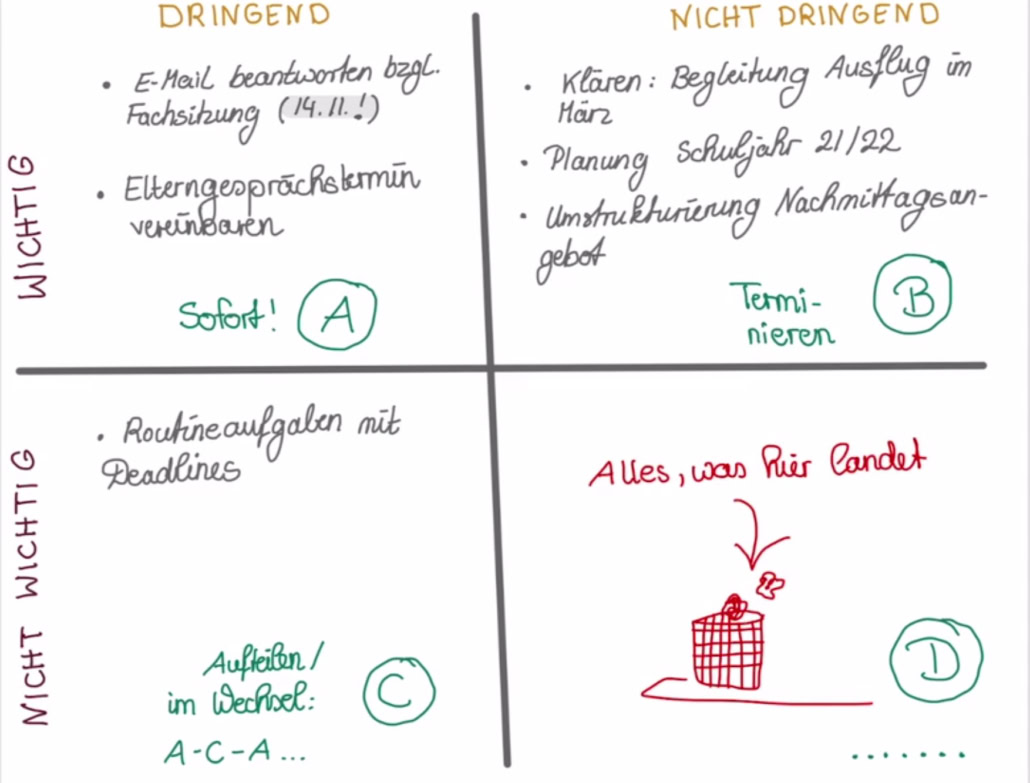 DRINGEND
NICHT DRINGEND
WICHTIG
• E-Mail beantworten bzgl.
Fachsitzung (14.11.!)
• Elterngesprächstermin
vereinbaren
Sofort!
A
• Klären: Begleitung Ausflug im
März
• Planung Schuljahr 21/22
• Umstrukturierung Nachmittagsan-
gebot
Termi-
nieren
B
NICHT WICHTIG
• Routineaufgaben mit
Deadlines
Aufteilen/
im Wechsel:
A-C-A...
C
Alles, was hier landet
D
.......